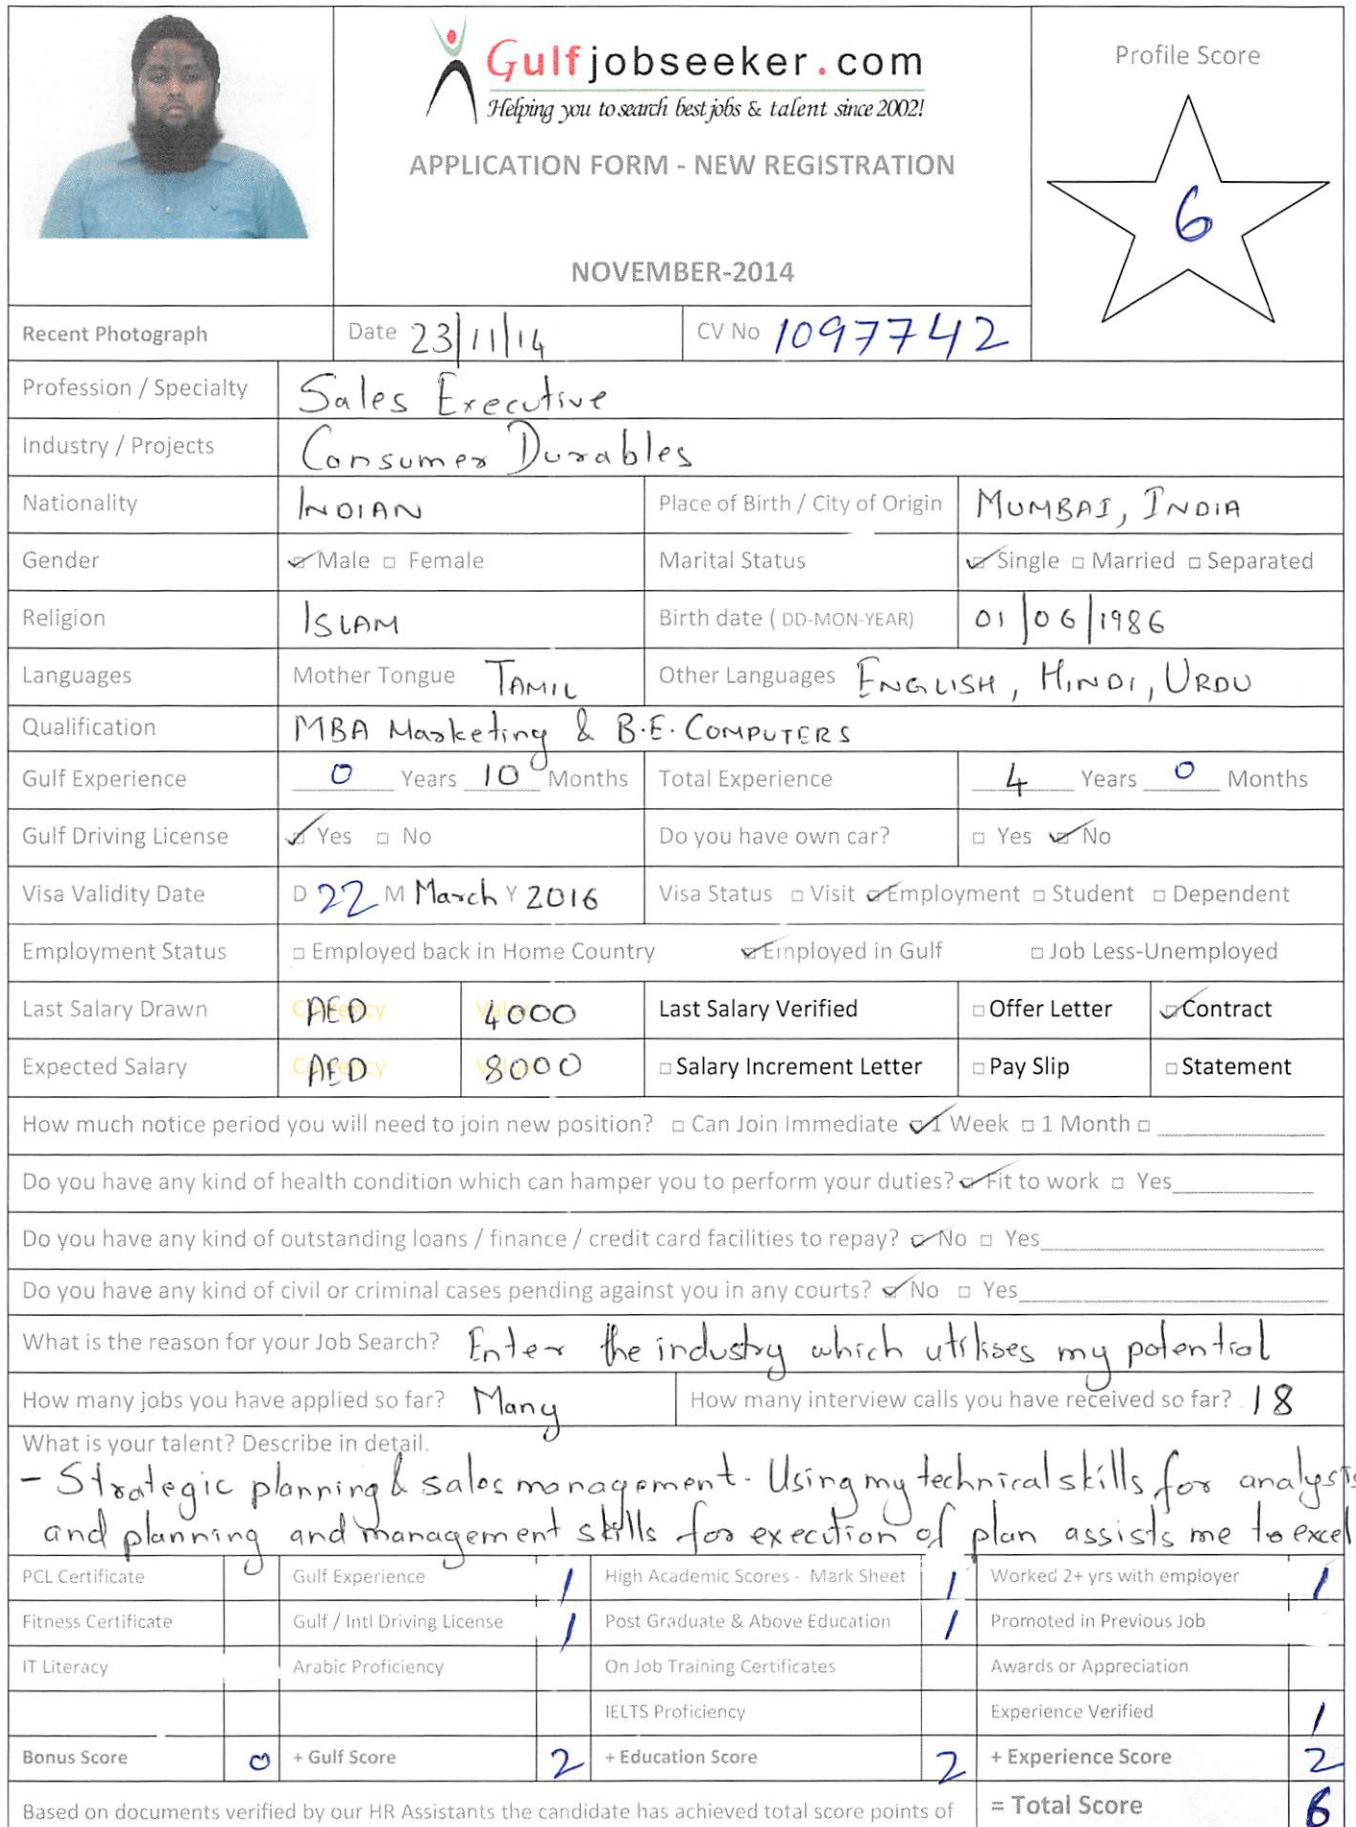 Gulfjobseeker.com
Helping you to search best jobs & talent since 2002!
Profile Score
APPLICATION FORM - NEW REGISTRATION
6
NOVEMBER-2014
Recent Photograph Date 23/11/14 CV No 1097742
Profession / Specialty Sales Executive
Industry / Projects Consumer Durables
Nationality INDIAN Place of Birth / City of Origin MUMBAI, INDIA
Gender ☑ Male ☐ Female Marital Status ☑ Single ☐ Married ☐ Separated
Religion ISLAM Birth date ( DD-MON-YEAR) 01/06/1986
Languages Mother Tongue TAMIL Other Languages ENGLISH, HINDI, URDU
Qualification MBA Marketing & B.E. COMPUTERS
Gulf Experience 0 Years 10 Months Total Experience 4 Years 0 Months
Gulf Driving License ☑ Yes ☐ No Do you have own car? ☐ Yes ☑ No
Visa Validity Date D 22 M March Y 2016 Visa Status ☐ Visit ☑ Employment ☐ Student ☐ Dependent
Employment Status ☐ Employed back in Home Country ☑ Employed in Gulf ☐ Job Less-Unemployed
Last Salary Drawn Currency AED Value 4000 Last Salary Verified ☐ Offer Letter ☑ Contract
Expected Salary Currency AED Value 8000 ☐ Salary Increment Letter ☐ Pay Slip ☐ Statement
How much notice period you will need to join new position? ☐ Can Join Immediate ☑ 1 Week ☐ 1 Month ☐
Do you have any kind of health condition which can hamper you to perform your duties? ☑ Fit to work ☐ Yes
Do you have any kind of outstanding loans / finance / credit card facilities to repay? ☑ No ☐ Yes
Do you have any kind of civil or criminal cases pending against you in any courts? ☑ No ☐ Yes
What is the reason for your Job Search? Enter the industry which utilises my potential
How many jobs you have applied so far? Many How many interview calls you have received so far? 18
What is your talent? Describe in detail.
- Strategic planning & sales management. Using my technical skills for analysis
and planning and management skills for execution of plan assists me to excel
PCL Certificate Gulf Experience 1 High Academic Scores - Mark Sheet 1 Worked 2+ yrs with employer 1
Fitness Certificate Gulf / Intl Driving License 1 Post Graduate & Above Education 1 Promoted in Previous Job
IT Literacy Arabic Proficiency On Job Training Certificates Awards or Appreciation
IELTS Proficiency Experience Verified 1
Bonus Score 0 + Gulf Score 2 + Education Score 2 + Experience Score 2
Based on documents verified by our HR Assistants the candidate has achieved total score points of = Total Score 6